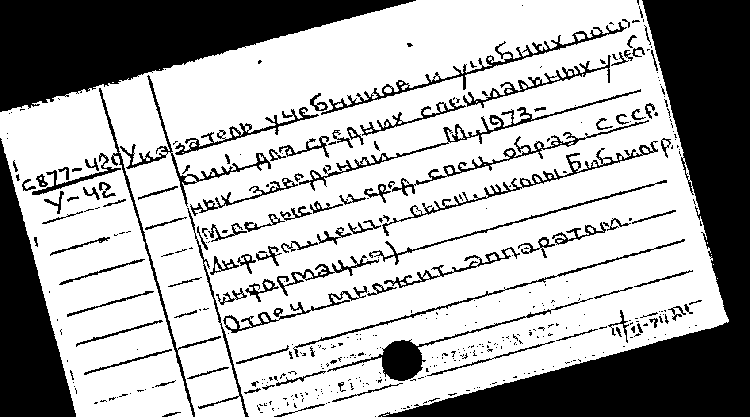 С877-420 Указатель учебников и учебных посо-
У-42 бий для средних специальных учеб-
ных заведений. М., 1973-
(М-во высш. и сред. спец. образ. СССР.
Информ. центр. высш. школы. Библиогр.
информация).
Отпеч. множит. аппаратом.